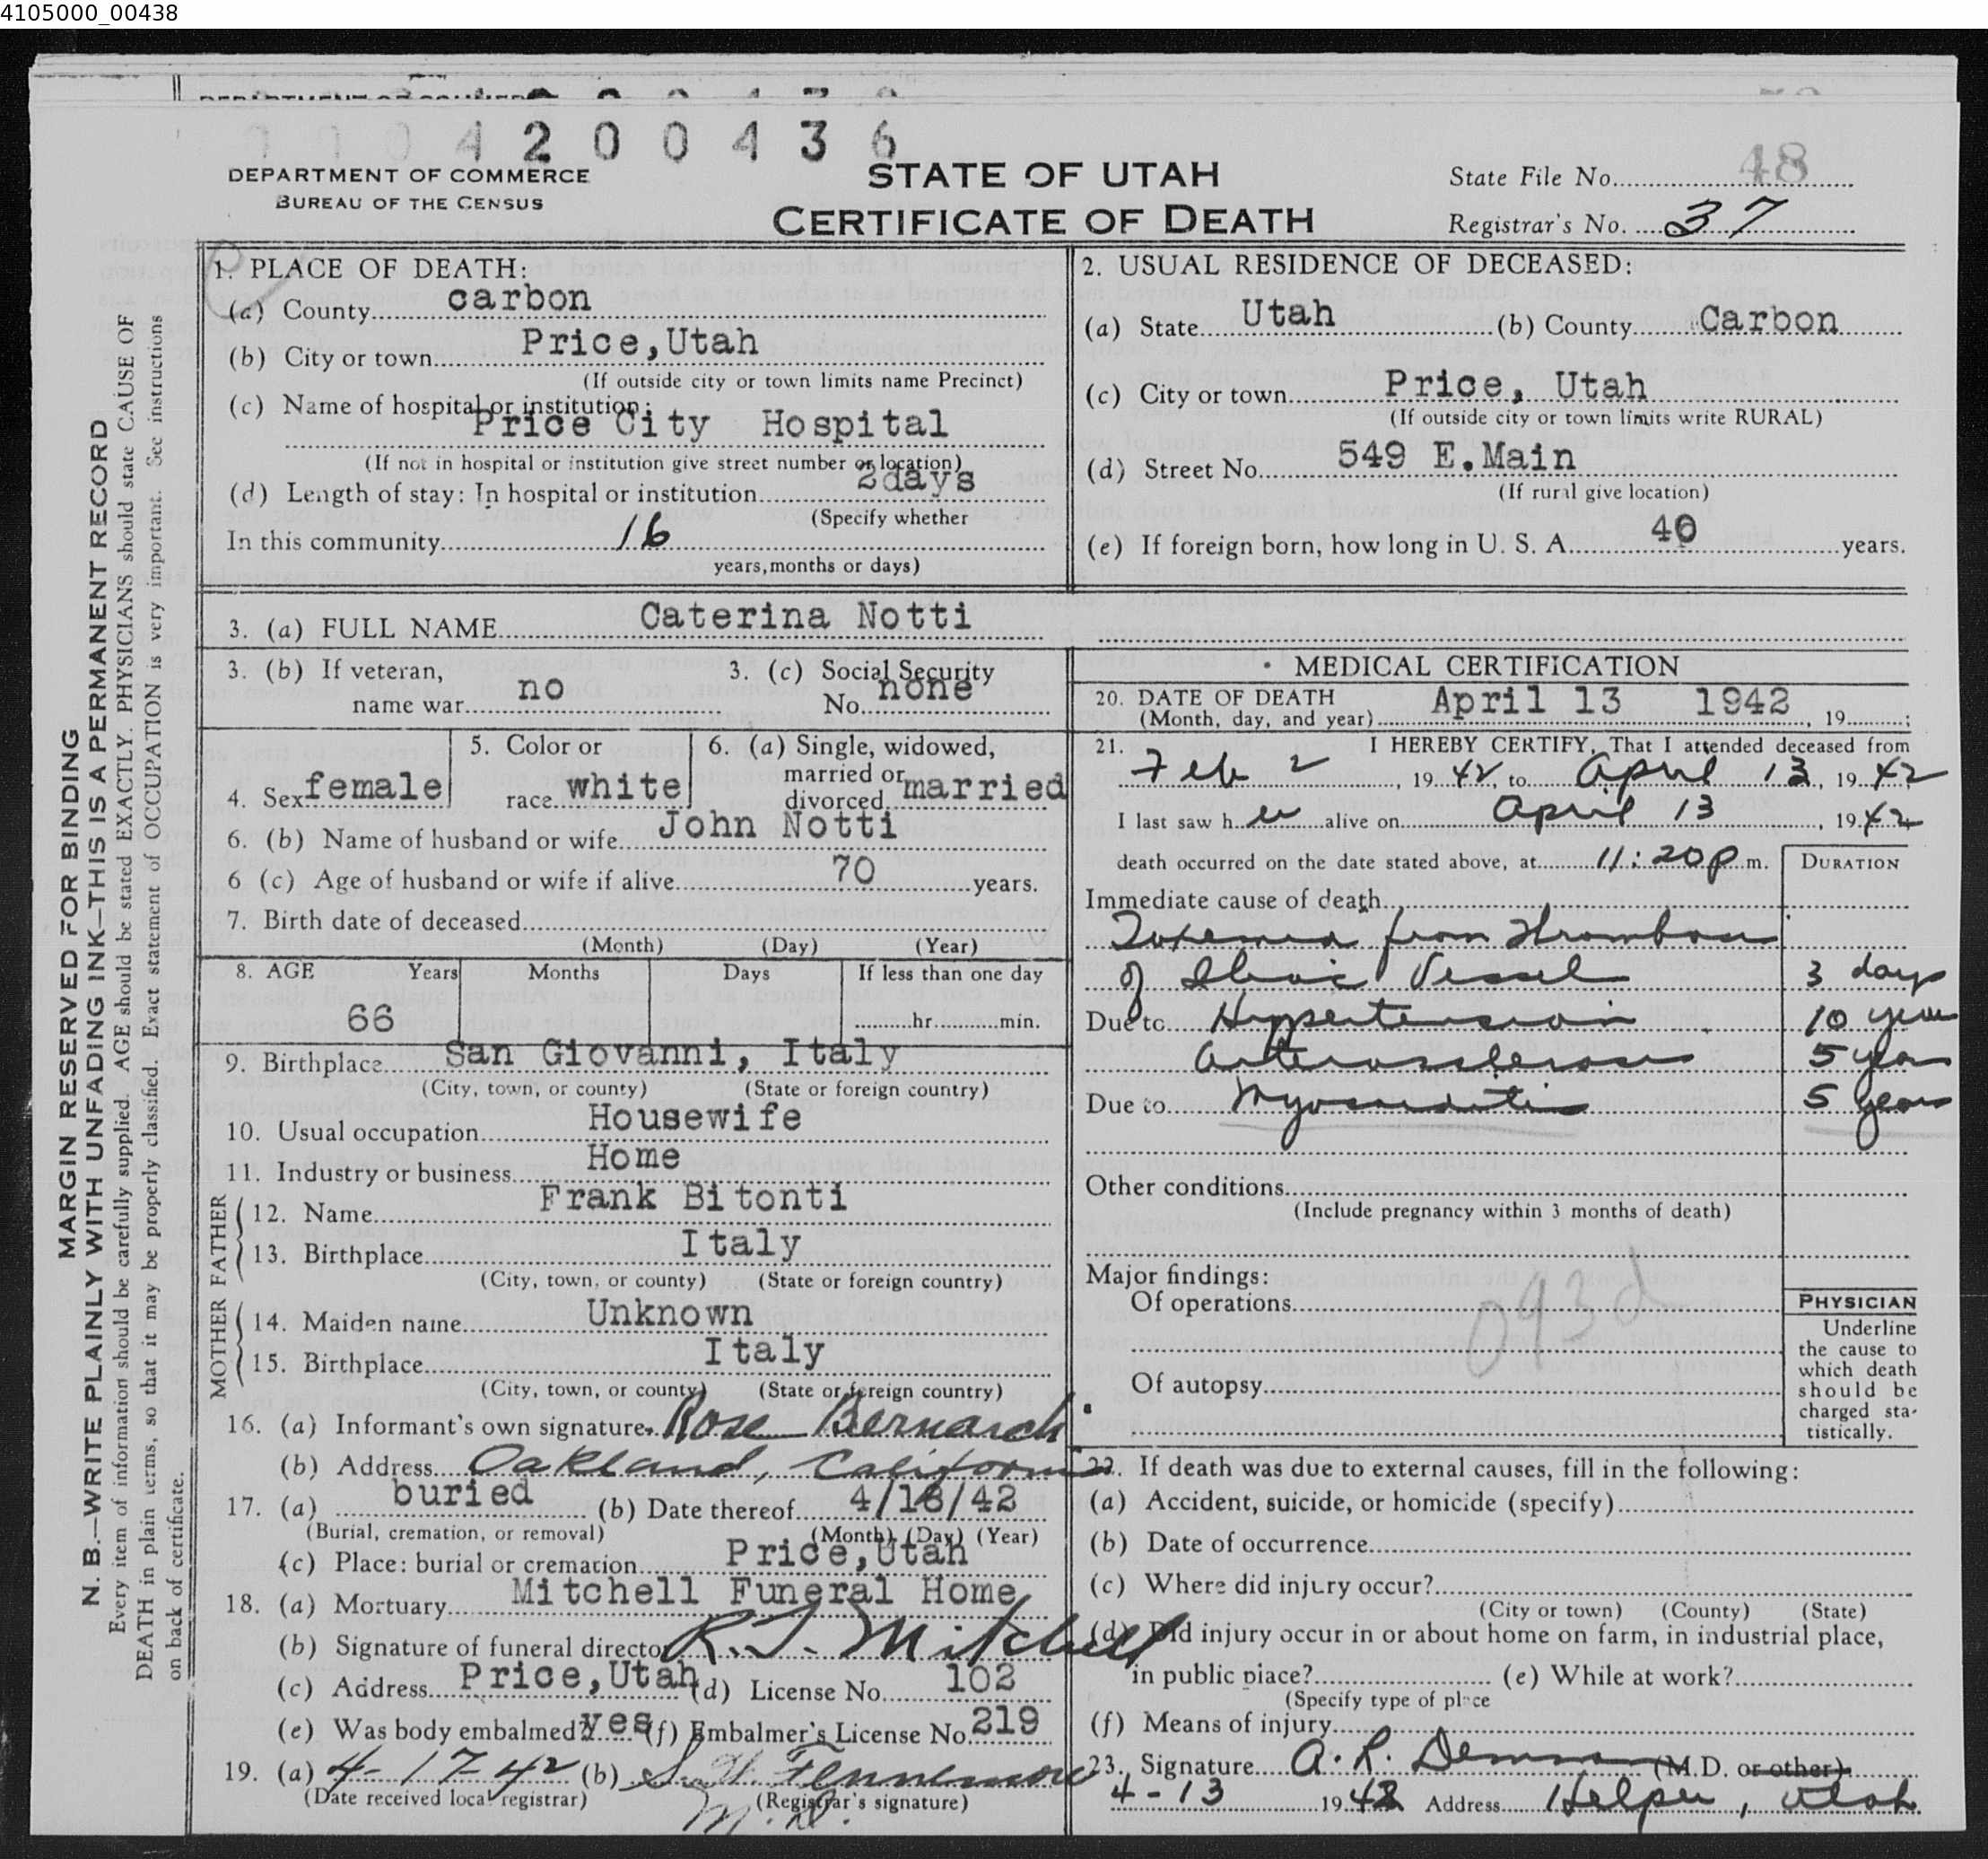 4105000_00438
4200436
DEPARTMENT OF COMMERCE
BUREAU OF THE CENSUS
STATE OF UTAH
CERTIFICATE OF DEATH
State File No. 48
Registrar's No. 37
MARGIN RESERVED FOR BINDING
N. B.—WRITE PLAINLY WITH UNFADING INK—THIS IS A PERMANENT RECORD
Every item of information should be carefully supplied. AGE should be stated EXACTLY. PHYSICIANS should state CAUSE OF
DEATH in plain terms, so that it may be properly classified. Exact statement of OCCUPATION is very important. See instructions
on back of certificate.
1. PLACE OF DEATH:
(a) County carbon
(b) City or town Price, Utah
(If outside city or town limits name Precinct)
(c) Name of hospital or institution:
Price City Hospital
(If not in hospital or institution give street number or location)
(d) Length of stay: In hospital or institution 2days
(Specify whether
In this community 16
years, months or days)
2. USUAL RESIDENCE OF DECEASED:
(a) State Utah (b) County Carbon
(c) City or town Price, Utah
(If outside city or town limits write RURAL)
(d) Street No. 549 E. Main
(If rural give location)
(e) If foreign born, how long in U. S. A. 40 years.
3. (a) FULL NAME Caterina Notti
3. (b) If veteran,
name war no
3. (c) Social Security
No. none
4. Sex female
5. Color or
race white
6. (a) Single, widowed,
married or
divorced married
6. (b) Name of husband or wife John Notti
6 (c) Age of husband or wife if alive 70 years.
7. Birth date of deceased
(Month) (Day) (Year)
8. AGE Years Months Days If less than one day
66 hr. min.
9. Birthplace San Giovanni, Italy
(City, town, or county) (State or foreign country)
10. Usual occupation Housewife
11. Industry or business Home
FATHER
12. Name Frank Bitonti
13. Birthplace Italy
(City, town, or county) (State or foreign country)
MOTHER
14. Maiden name Unknown
15. Birthplace Italy
(City, town, or county) (State or foreign country)
16. (a) Informant's own signature Rose Bernardi
(b) Address Oakland, California
17. (a) buried (b) Date thereof 4/16/42
(Burial, cremation, or removal) (Month) (Day) (Year)
(c) Place: burial or cremation Price, Utah
18. (a) Mortuary Mitchell Funeral Home
(b) Signature of funeral director R. J. Mitchell
(c) Address Price, Utah (d) License No. 102
(e) Was body embalmed? yes (f) Embalmer's License No. 219
19. (a) 4-17-42 (b) Fennemore
(Date received local registrar) (Registrar's signature)
M.D.
MEDICAL CERTIFICATION
20. DATE OF DEATH April 13 1942
(Month, day, and year) , 19 ;
21. I HEREBY CERTIFY, That I attended deceased from
Feb 2, 1942, to April 13, 1942;
I last saw her alive on April 13, 1942
death occurred on the date stated above, at 11:20 p m. DURATION
Immediate cause of death
Toxemia from thrombosis
of Iliac Vessel 3 days
Due to Hypertension 10 years
Arteriosclerosis 5 years
Due to Myocarditis 5 years
Other conditions
(Include pregnancy within 3 months of death)
Major findings:
Of operations
093d
Of autopsy
PHYSICIAN
Underline
the cause to
which death
should be
charged sta-
tistically.
22. If death was due to external causes, fill in the following:
(a) Accident, suicide, or homicide (specify)
(b) Date of occurrence
(c) Where did injury occur?
(City or town) (County) (State)
(d) Did injury occur in or about home on farm, in industrial place,
in public place? (e) While at work?
(Specify type of place
(f) Means of injury
23. Signature A. R. Demman (M.D. or other)
4-13 1942 Address Helper, Utah